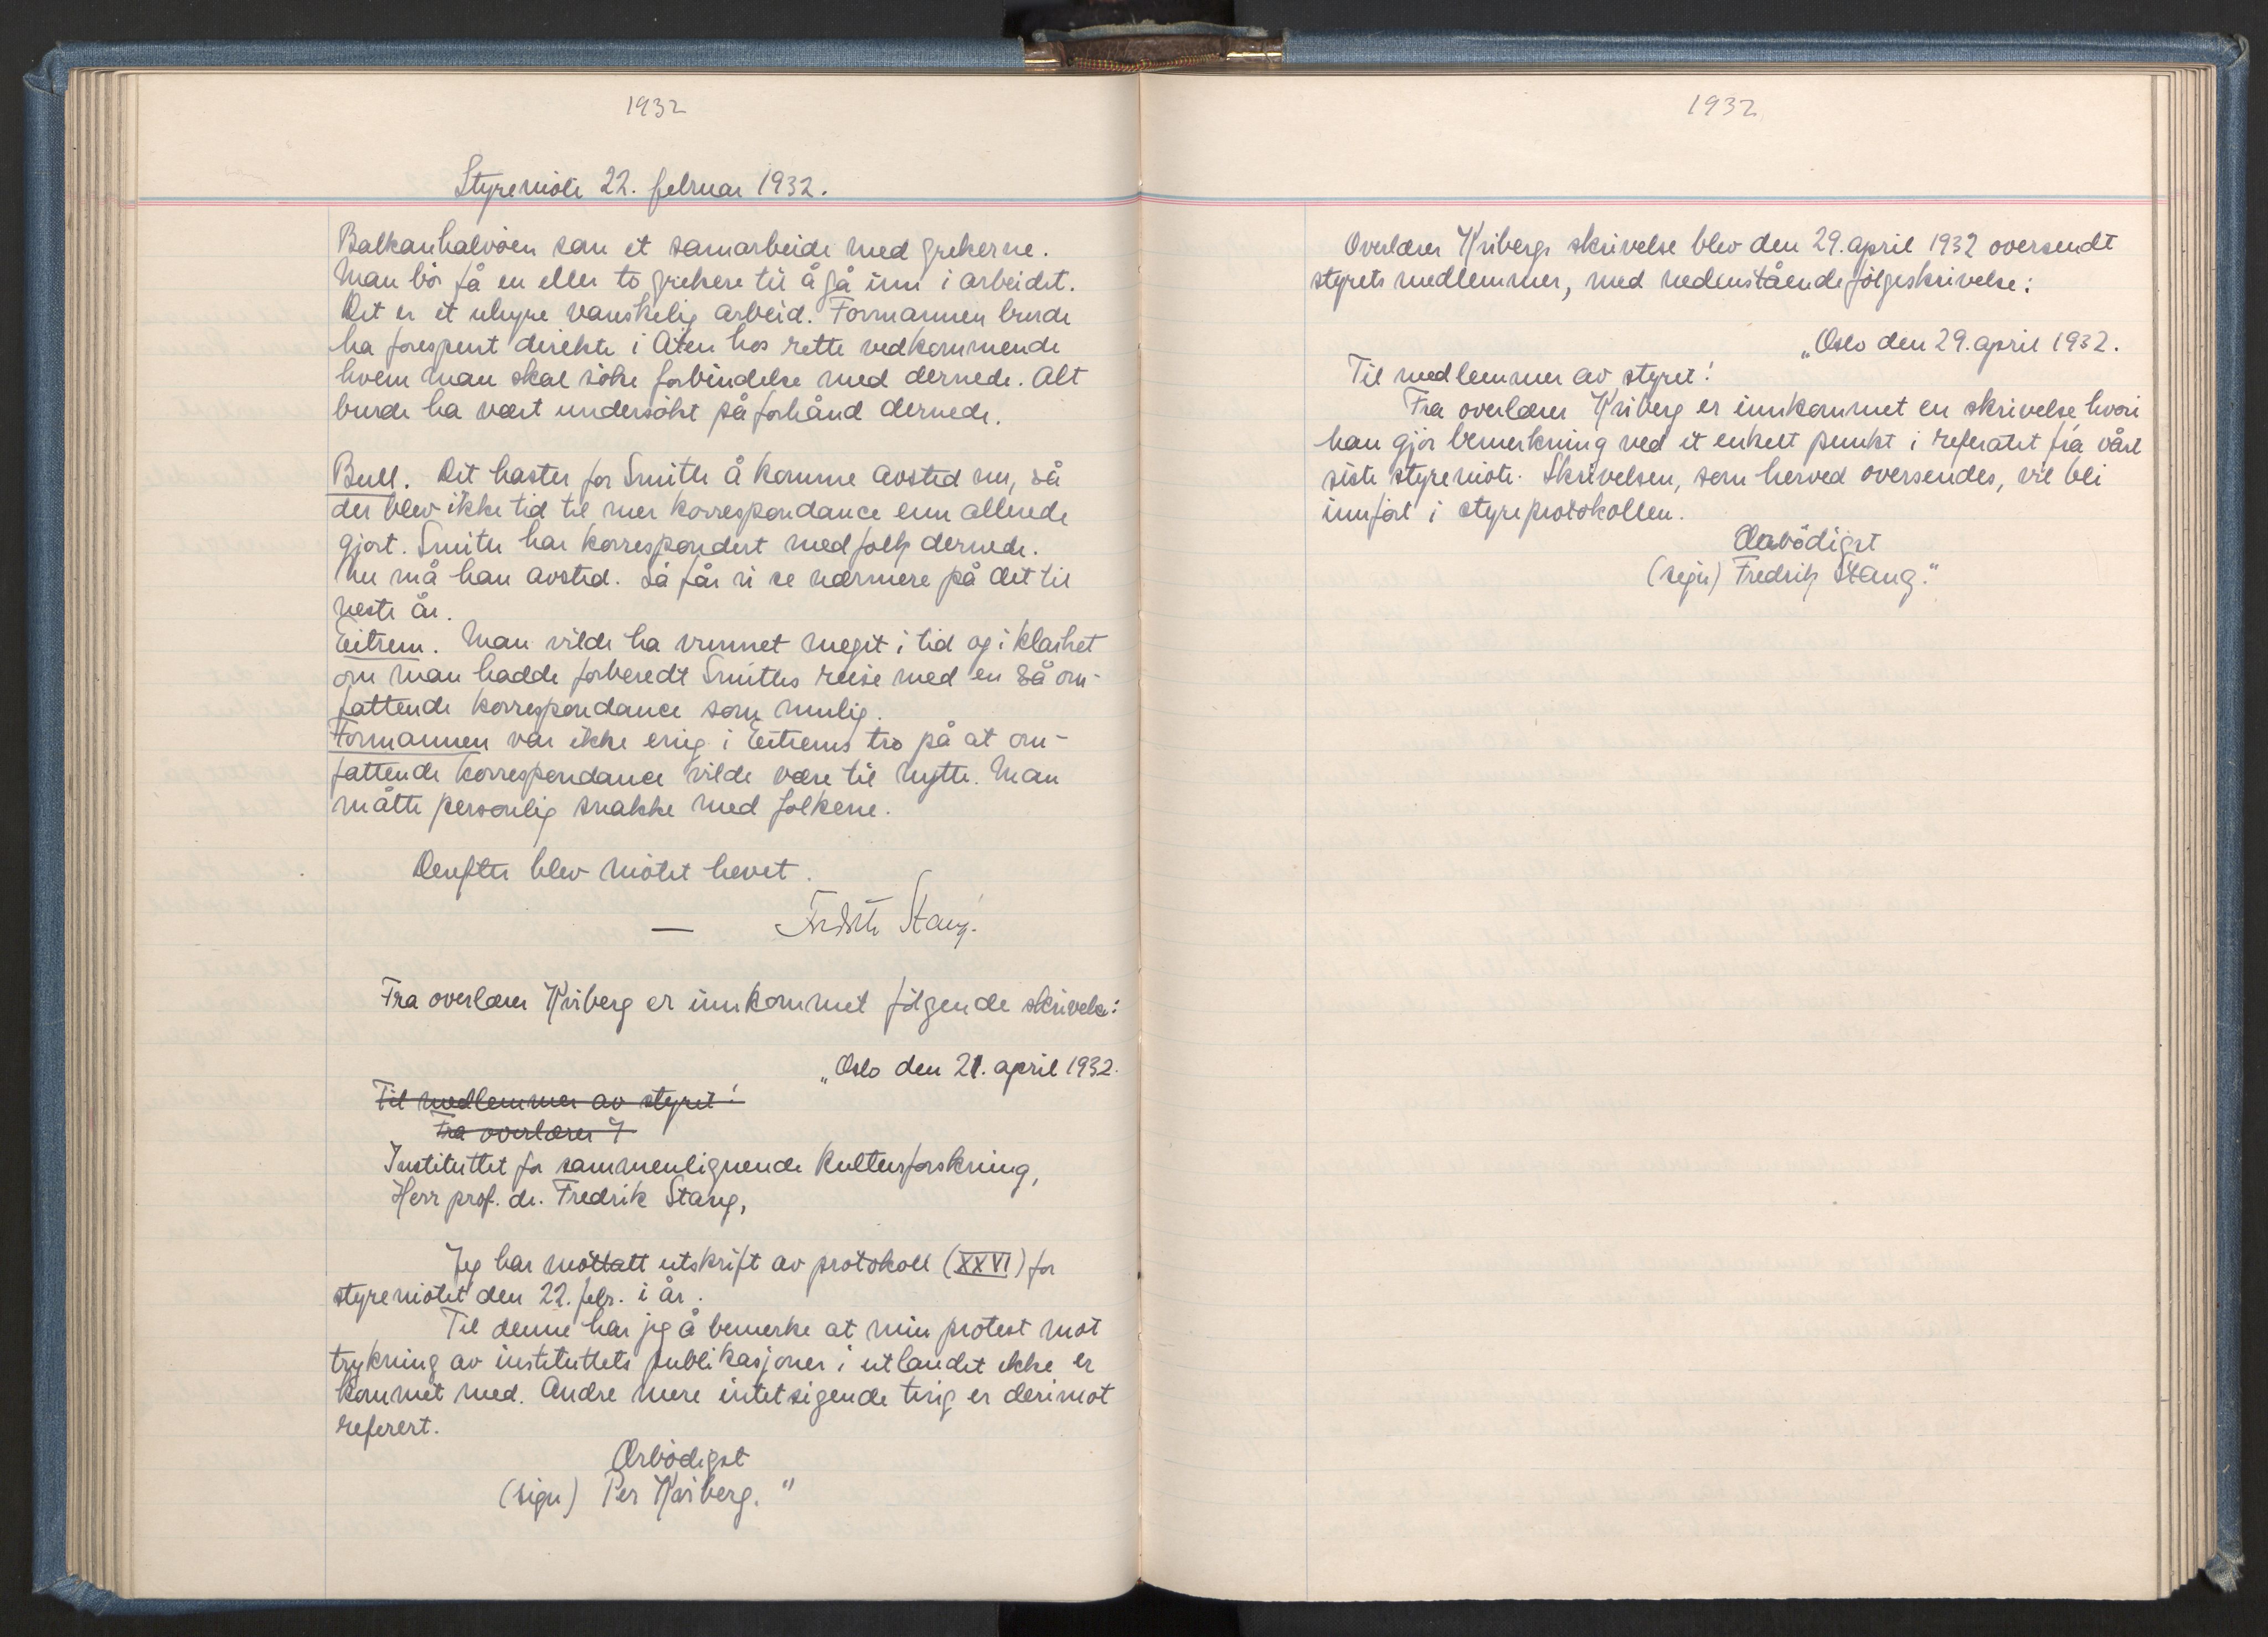 1932
Styremöte 22. februar 1932.
Balkanhalvöen som et samarbeide med grekerne.
Man bör få en eller to grekere til å gå inn i arbeidet.
Det er et uhyre vanskelig arbeid. Formannen burde
ha forespurt direkte i Aten hos rette vedkommende
hvem man skal söke forbindelse med dernede. Alt
burde ha vært undersökt på forhånd dernede.
Bull. Det haster for Smith å komme avsted nu, så
der blev ikke tid til mer korrespondance enn allerede
gjort. Smith har korrespondert med folk dernede.
Nu må han avsted. Så får vi se nærmere på det til
neste år.
Eitrem. Man vilde ha vunnet meget i tid og i klarhet
om man hadde forberedt Smiths reise med en så om-
fattende korrespondance som mulig.
Formannen var ikke enig i Eitrems tro på at om-
fattende korrespondance vilde være til nytte. Man
måtte personlig snakke med folkene.
Derefter blev mötet hevet.
— Fredrik Stang.
Fra overlærer Kviberg er innkommet fölgende skrivelse:
„Oslo den 21. april 1932.
Til medlemmer av styret!
Fra overlærer
Instituttet for sammenlignende kulturforskning,
Herr prof. dr. Fredrik Stang,
Jeg har möttatt utskrift av protokoll (XXVI) for
styremötet den 22. febr. i år.
Til denne har jeg å bemerke at min protest mot
trykning av instituttets publikasjoner i utlandet ikke er
kommet med. Andre mere intetsigende ting er derimot
referert.
Ærbödigst
(sign) Per Kviberg."
1932
Overlærer Kvibergs skrivelse blev den 29. april 1932 oversendt
styrets medlemmer, med nedenstående fölgeskrivelse:
„Oslo den 29. april 1932.
Til medlemmer av styret!
Fra overlærer Kviberg er innkommet en skrivelse hvori
han gjör bemerkning ved et enkelt punkt i referatet fra vårt
siste styremöte. Skrivelsen, som herved oversendes, vil bli
innfört i styreprotokollen.
Ærbödigst
(sign) Fredrik Stang."